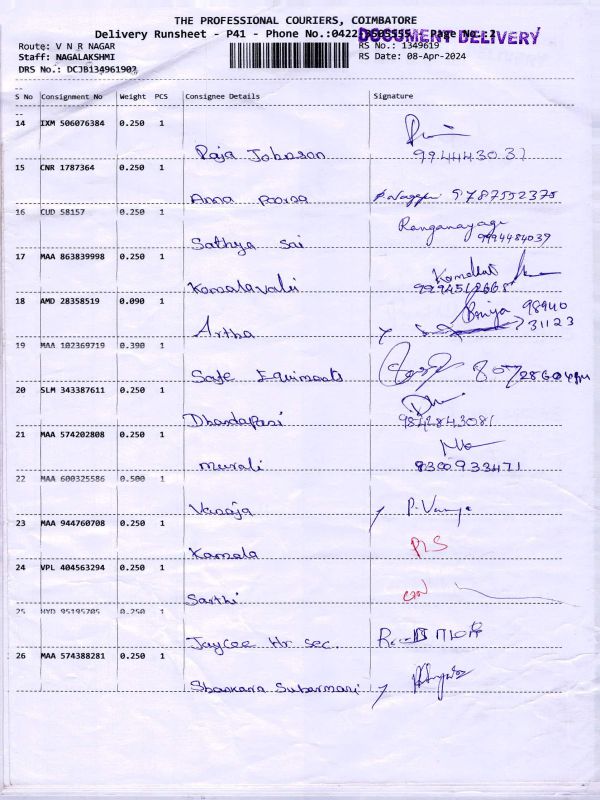 THE PROFESSIONAL COURIERS, COIMBATORE
Delivery Runsheet - P41 - Phone No.:0422 Page No.:2
DOCUMENT DELIVERY
Route: V N R NAGAR RS No.: 1349619
Staff: NAGALAKSHMI RS Date: 08-Apr-2024
DRS No.: DCJB134961902
--
S No Consignment No Weight PCS Consignee Details Signature
--
14 IXM 506076384 0.250 1
Raja Jobnson 99444430 37
15 CNR 1787364 0.250 1
Anna Poorna 9787552375
16 CUD 58157 0.250 1 Ranganayagi
Sathya Sai 9994484039
17 MAA 863839998 0.250 1
Komalavalli 9994512668
18 AMD 28358519 0.090 1 98940
Artha 31123
19 MAA 102369719 0.390 1
Safe Equimeats
20 SLM 343387611 0.250 1
Dhandapani 9842843081
21 MAA 574202808 0.250 1
Murali 8300933471
22 MAA 600325586 0.500 1
Vanaja P. Vanaja
23 MAA 944760708 0.250 1
Kamala
24 VPL 404563294 0.250 1
Sarthi
25 HYD 95195705 0.250 1
Jaycee Hr sec.
26 MAA 574388281 0.250 1
Shankara Subarmani